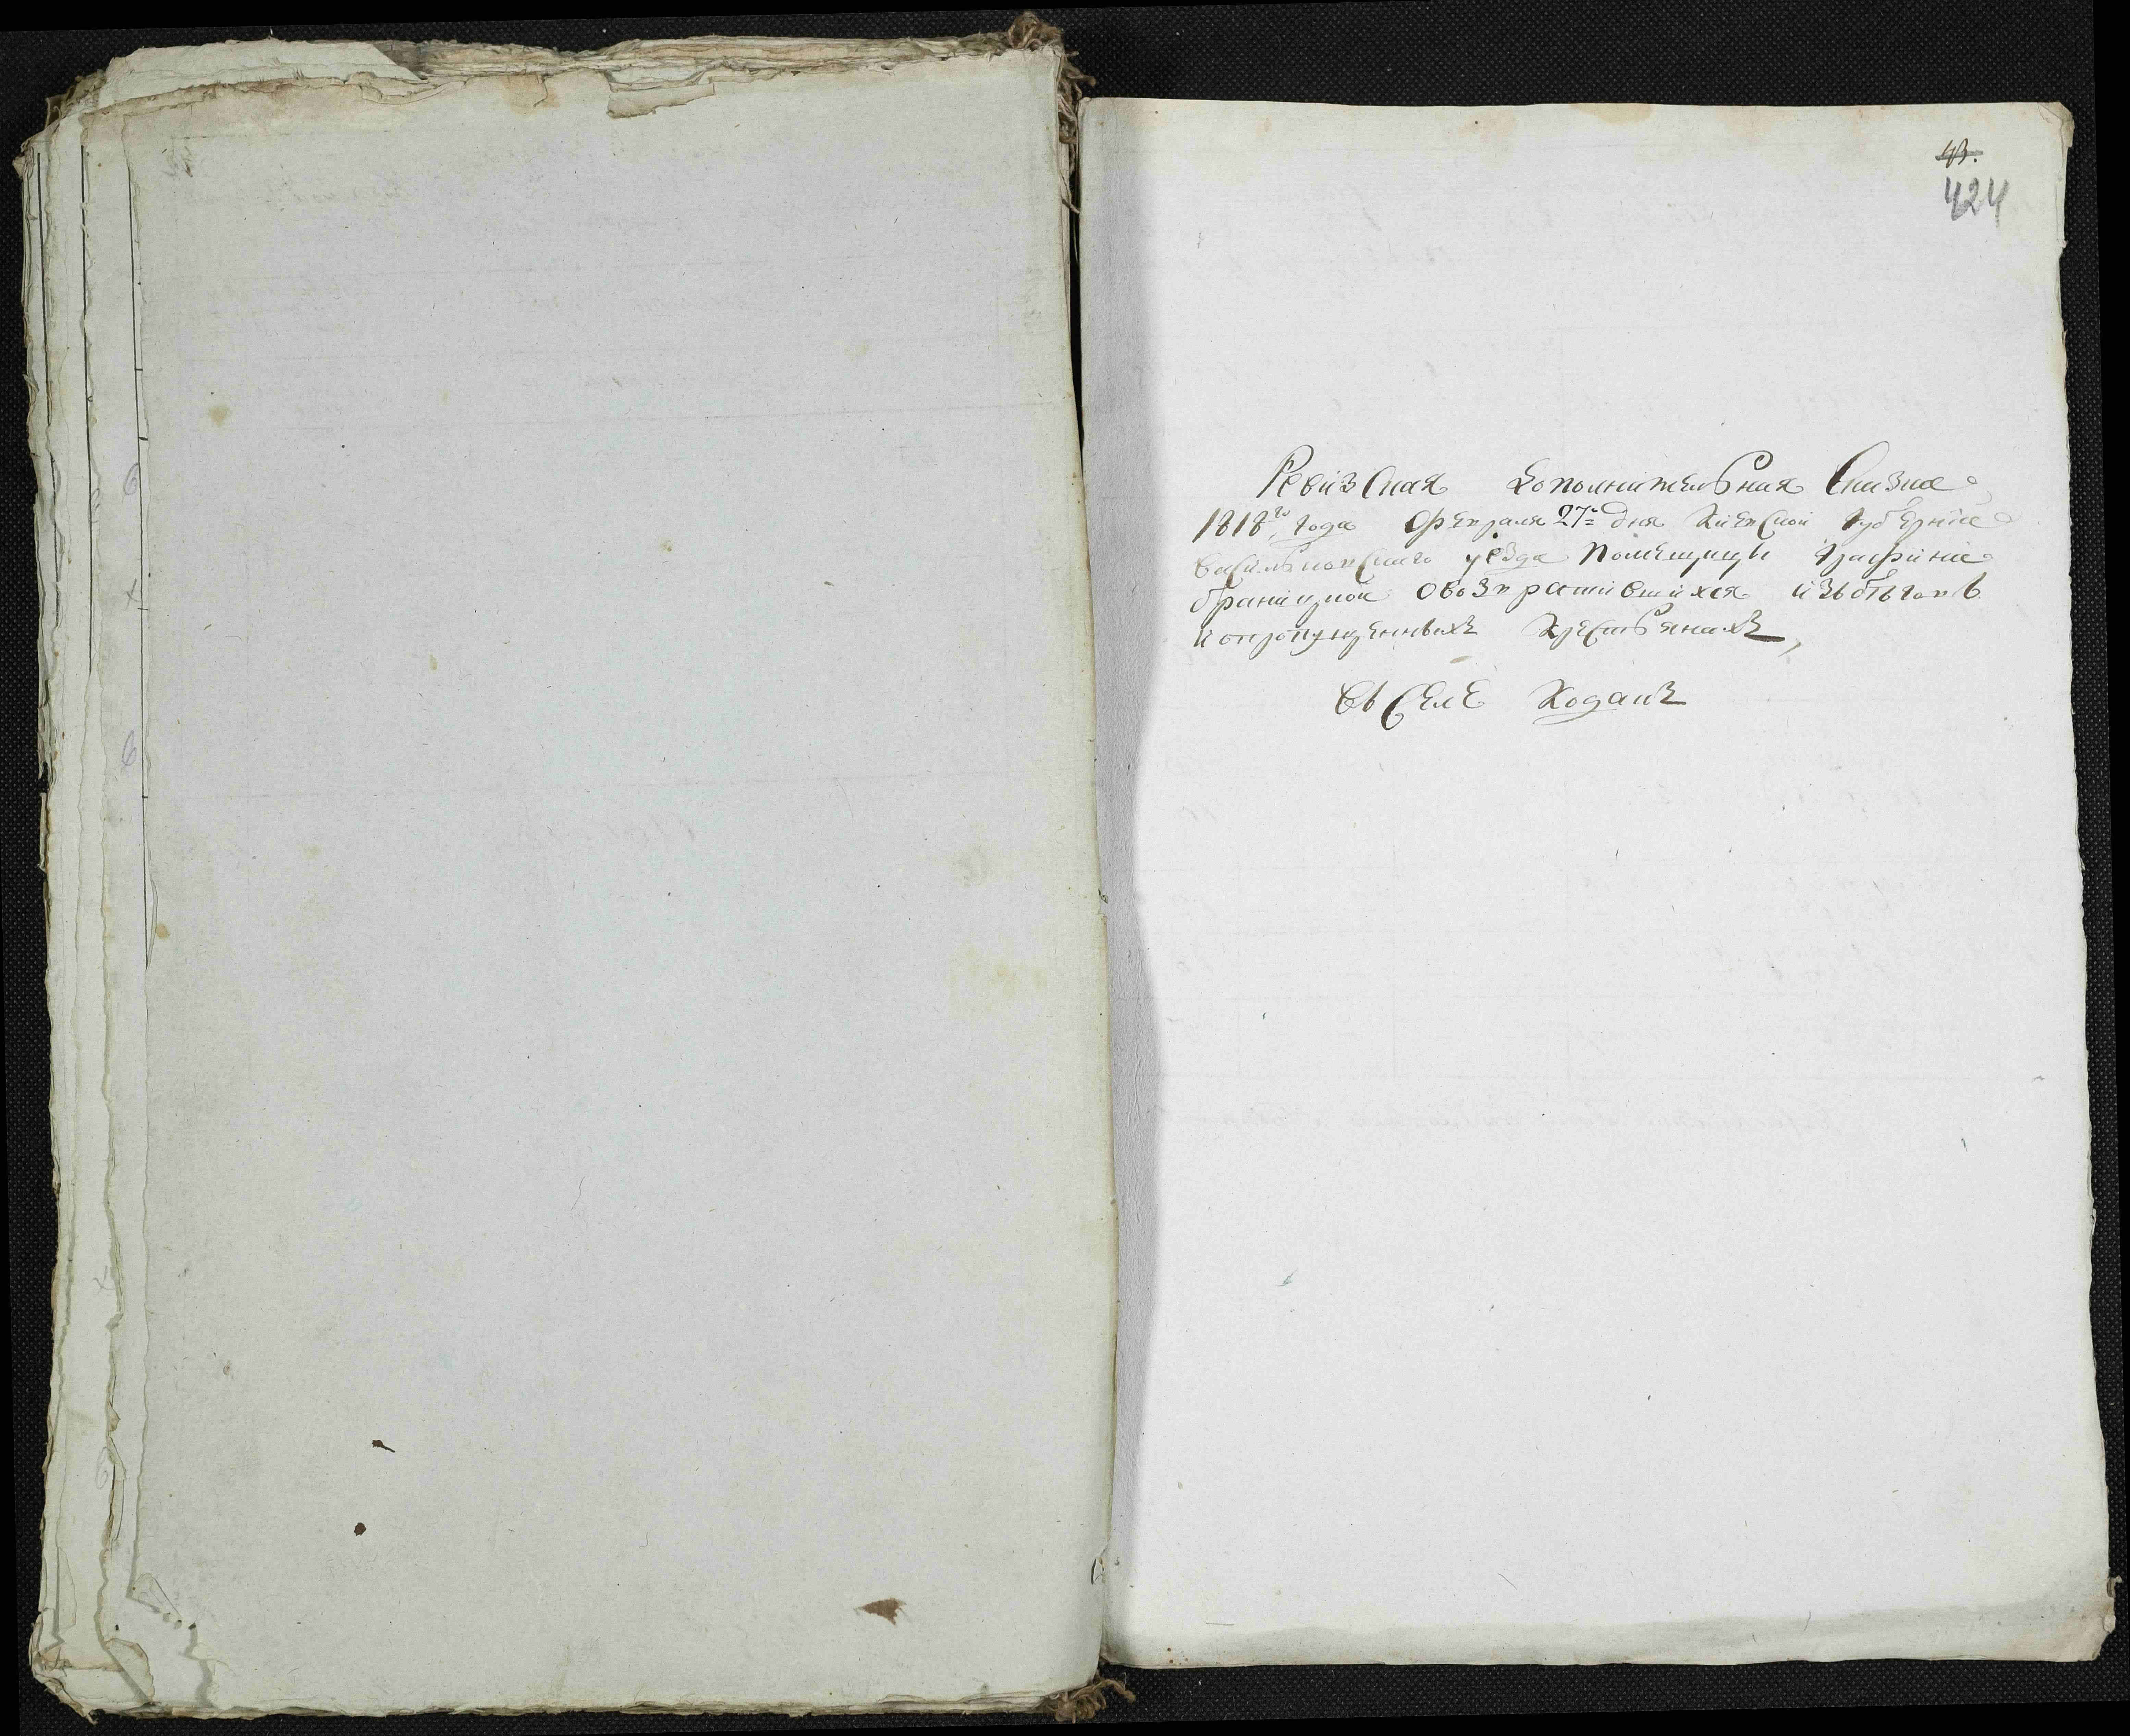 43.
424
Ревизская дополнительная Сказка
1818го года февраля 27го дня Киевской губернии
васильковского уезда помещицы графини
браницкой овозвратившихся изъ беговъ
и опропущенныхъ крестьянахъ,
въ Селе Ходакъ